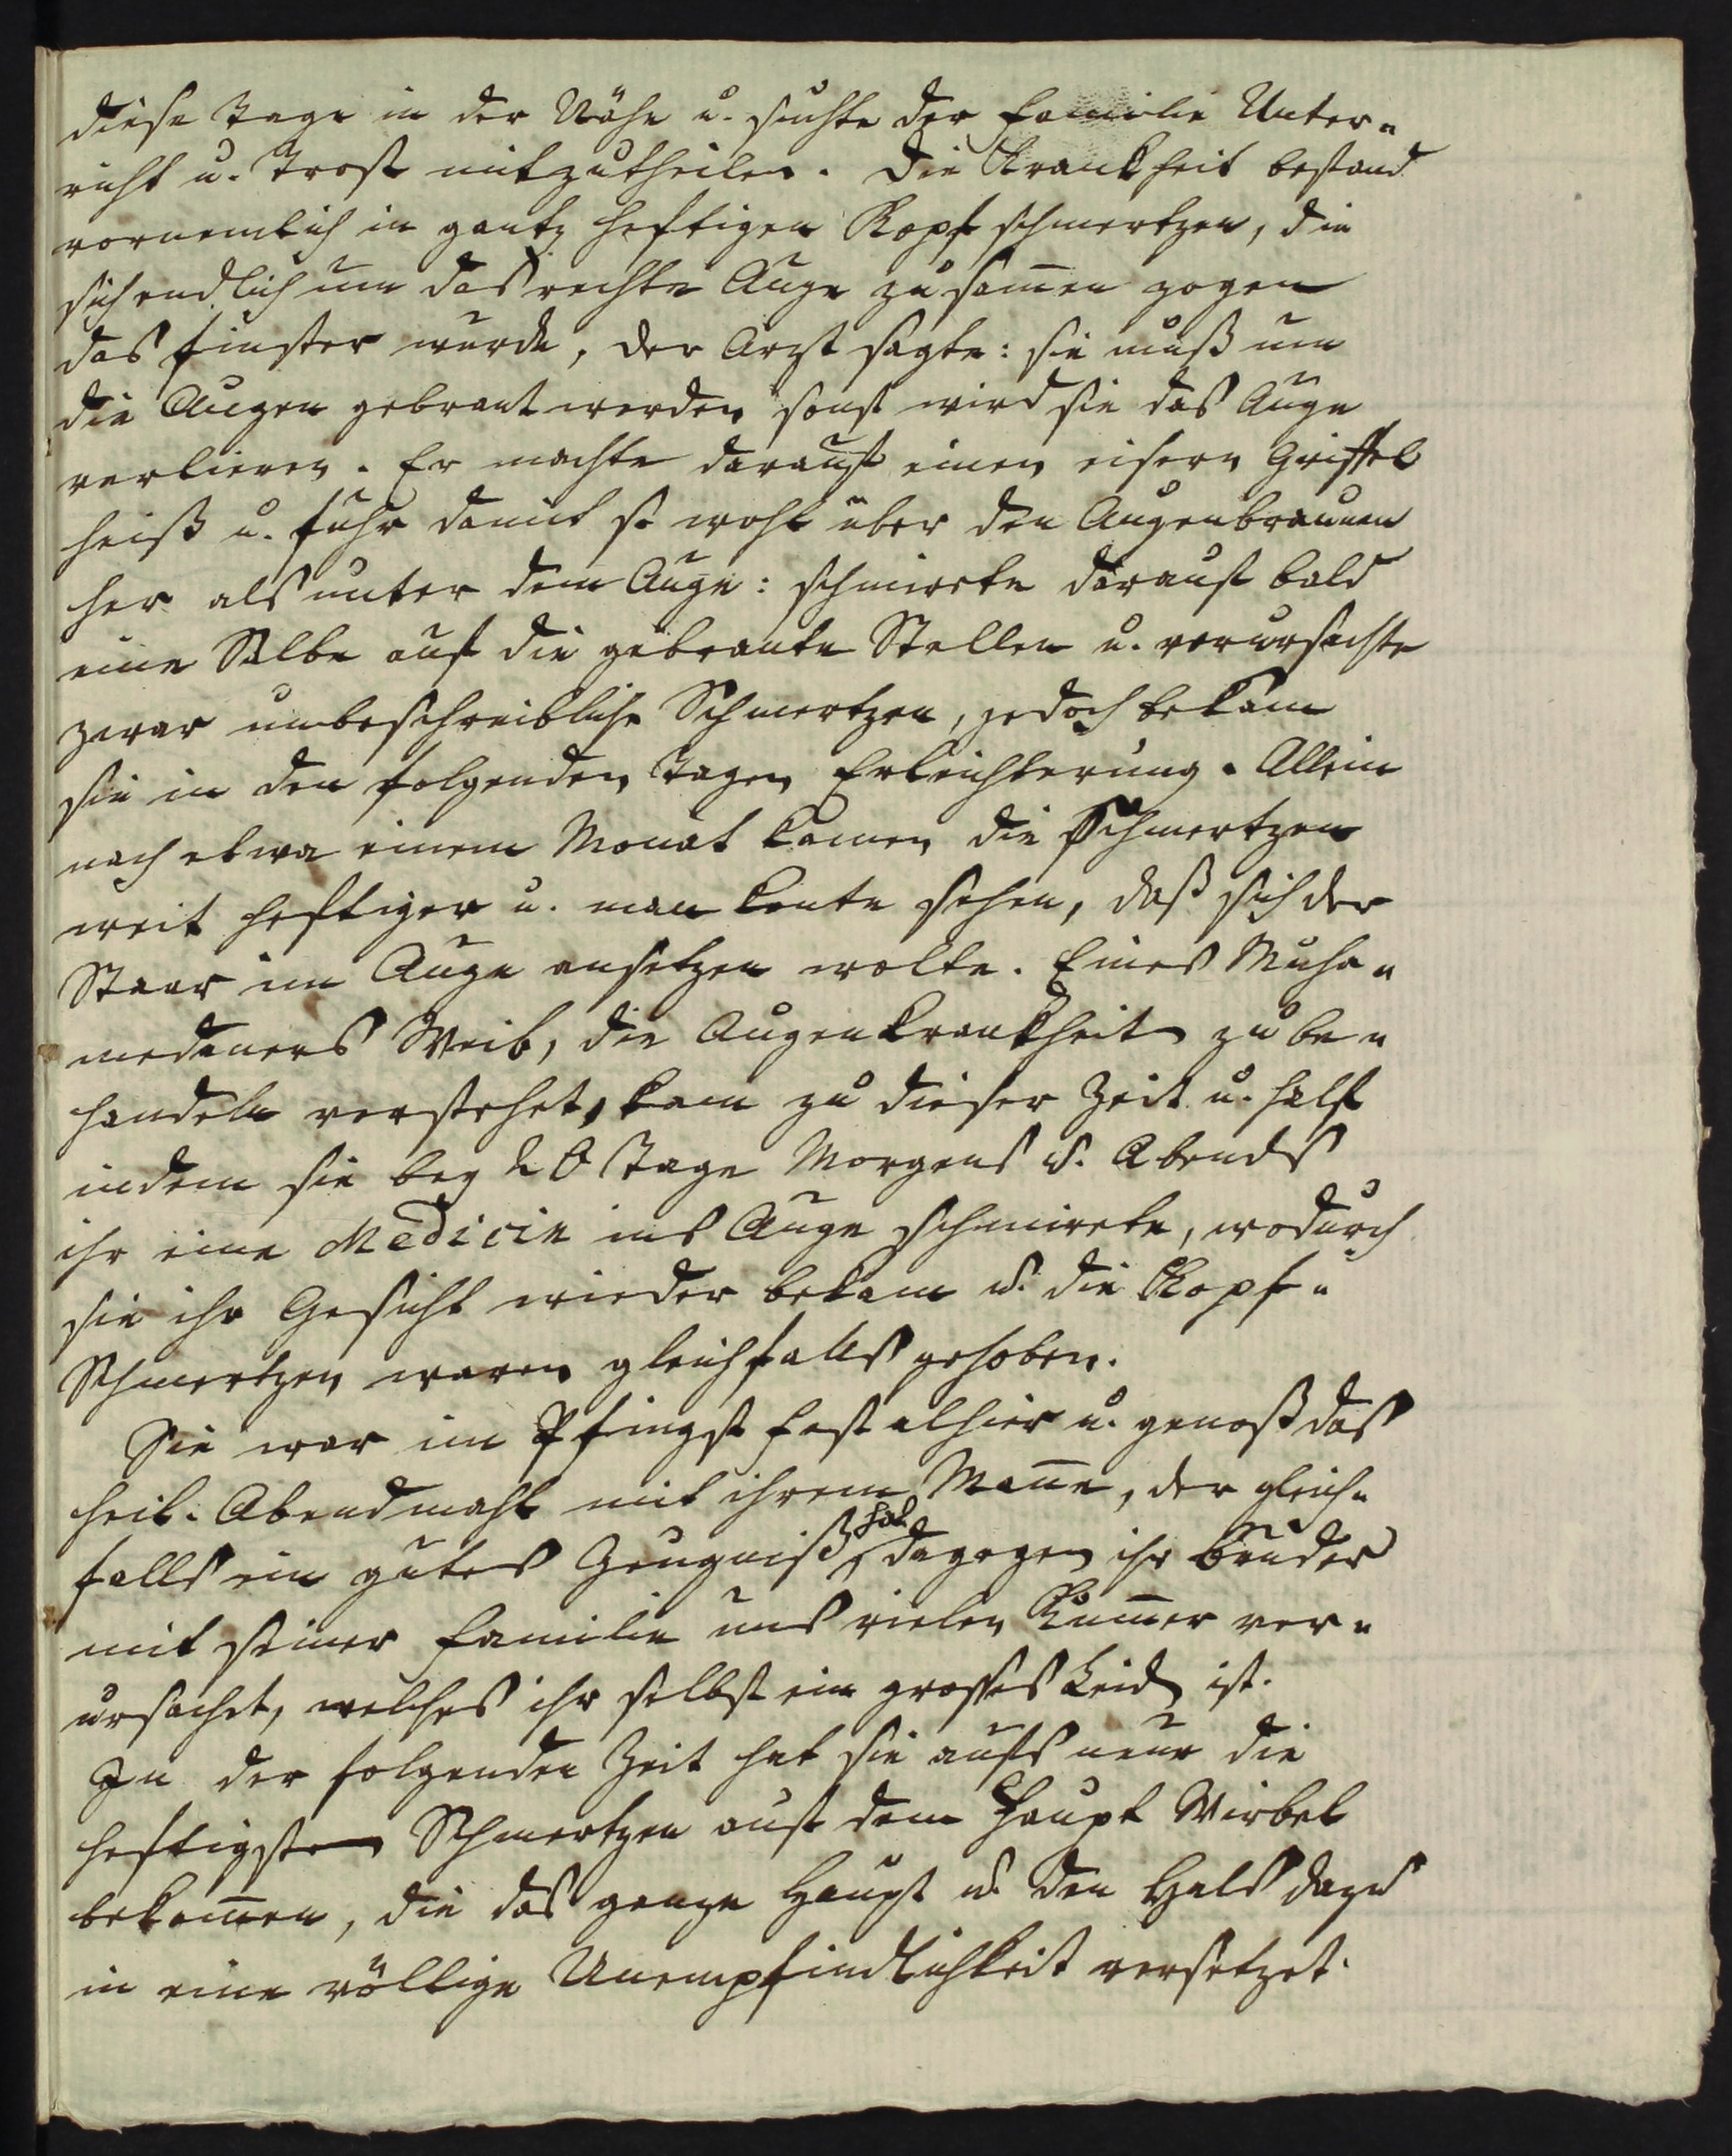 diese Tage in der Nähe u. suchte der Familie Unter-
richt u. Trost mitzutheilen. Die Kranckheit bestand
vornemlich in gantz heftigen Kopfschmertzen, die
sich endlich um das rechte Auge zusam̅en zogen
das finster wurde, der Arzt sagte: sie muß um
die Augen gebrant werden sonst wird sie das Auge
verlieren. Er machte darauf einen eisern Griffel
heiß u. fuhr damit so wohl über den Augenbraunen
her als unter dem Auge: schmierte darauf bald
eine Salbe auf die gebrante Stellen u. verursachte
zwar unbeschreibliche Schmertzen, jedoch bekam
sie in den folgenden Tagen Erleichterung. Allein
nach etwa einem Monat kamen die Schmertzen
weit heftiger u. man konte sehen, daß sich der
Staar im Auge ansetzen wolte. Eines Muha-
medaners Weib, die Augenkranckheit zu be-
handeln verstehet, kam zu dieser Zeit u. half
indem sie bey 20 Tage Morgens u. Abends
ihr eine Medicin ins Auge schmierte, wodurch
sie ihr Gesicht wieder bekam u. die Kopf-
Schmertzen waren gleichfalls gehoben.
Sie war im Pfingst fest alhier u. genoß das
heil. Abendmahl mit ihrem Man̅e, der gleich-
falls ein gutes Zeugniß hat dagegen ihr Bruder
mit seiner Familie uns vielen Kum̅er ver-
ursachet, welches ihr selbst ein grosses Leid ist.
In der folgenden Zeit hat sie aufs neue die
heftigsten Schmertzen auf dem Haupt Wirbel
bekom̅en, die das gantze Haupt u. den Hals dazu
in eine völlige Unempfindlichkeit versetzet.